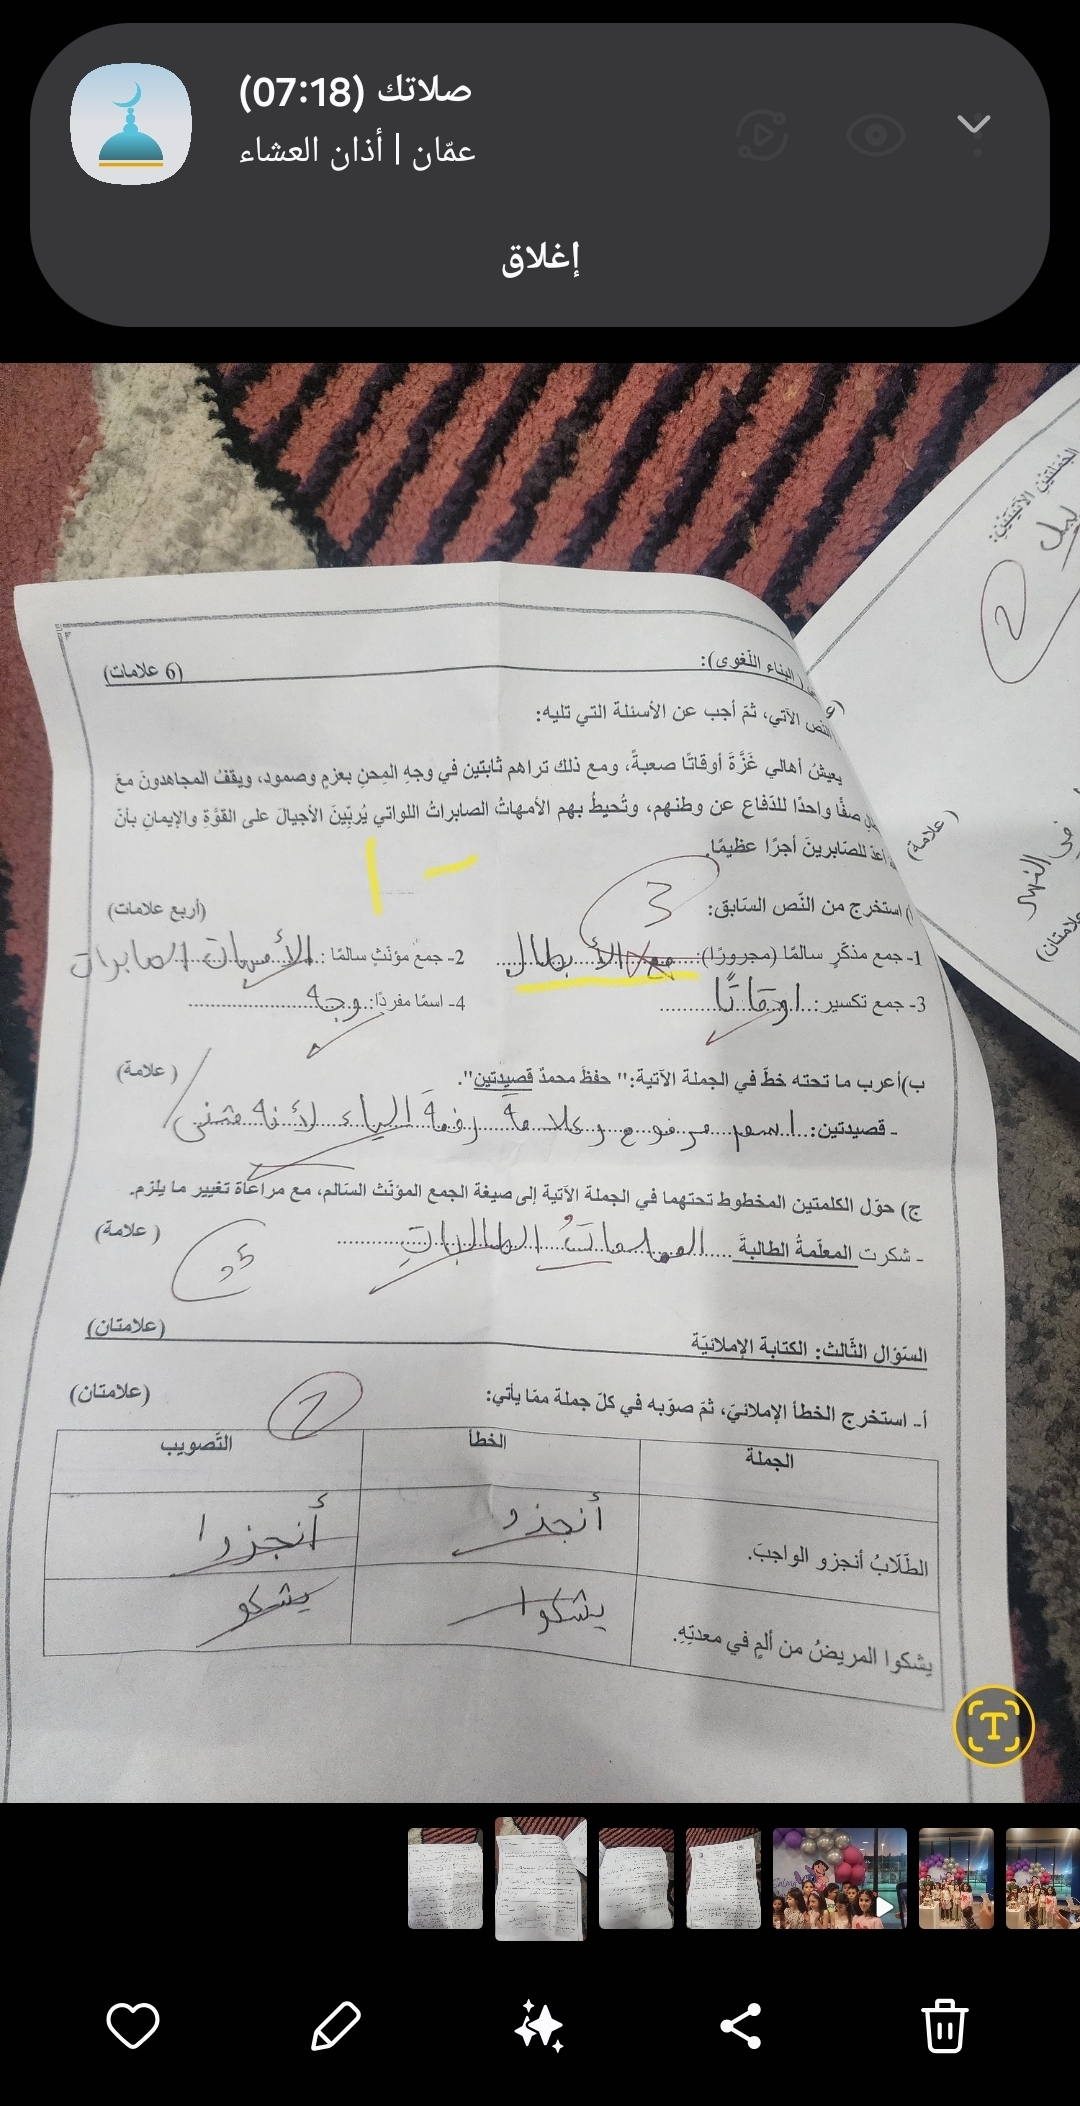 صلاتك (07:18)
عمّان | أذان العشاء
إغلاق
الجملتين الآتيتين:
2
(علامة)
البناء اللّغوي): (6 علامات)
النّص الآتي، ثمّ أجب عن الأسئلة التي تليه:
يعيشُ أهالي غَزَّةَ أوقاتًا صعبةً، ومع ذلك تراهم ثابتين في وجهِ المِحنِ بعزمٍ وصمود، ويقفُ المجاهدونَ معَ
صفًّا واحدًا للدّفاع عن وطنهم، وتُحيطُ بهم الأمهاتُ الصابراتُ اللواتي يُربّينَ الأجيالَ على القوّةِ والإيمانِ بأنّ
أعدّ للصّابرينَ أجرًا عظيمًا.
1 -
3
أ) استخرج من النّص السّابق: (أربع علامات)
1- جمع مذكّرٍ سالمًا (مجرورًا): مع الأبطال 2- جمع مؤنّثٍ سالمًا: الأمهات الصابرات
3- جمع تكسير: اوقاتًا 4- اسمًا مفردًا: وجه
ب) أعرب ما تحته خطّ في الجملة الآتية: "حفظَ محمدٌ قصيدتين". (علامة)
- قصيدتين: اسم مرفوع وعلامة رفعة الياء لأنة مثنى
ج) حوّل الكلمتين المخطوط تحتهما في الجملة الآتية إلى صيغة الجمع المؤنّث السّالم، مع مراعاة تغيير ما يلزم.
(علامة)
- شكرت المعلّمةُ الطالبةَ المعلماتُ الطالباتِ
السّؤال الثّالث: الكتابة الإملائيّة (علامتان)
أ- استخرج الخطأ الإملائيّ، ثمّ صوّبه في كلّ جملة ممّا يأتي: (علامتان)
2
الجملة الخطأ التّصويب
الطّلّابُ أنجزو الواجبَ. أنجزو أنجزوا
يشكوا المريضُ من ألمٍ في معدتِهِ. يشكوا يشكو